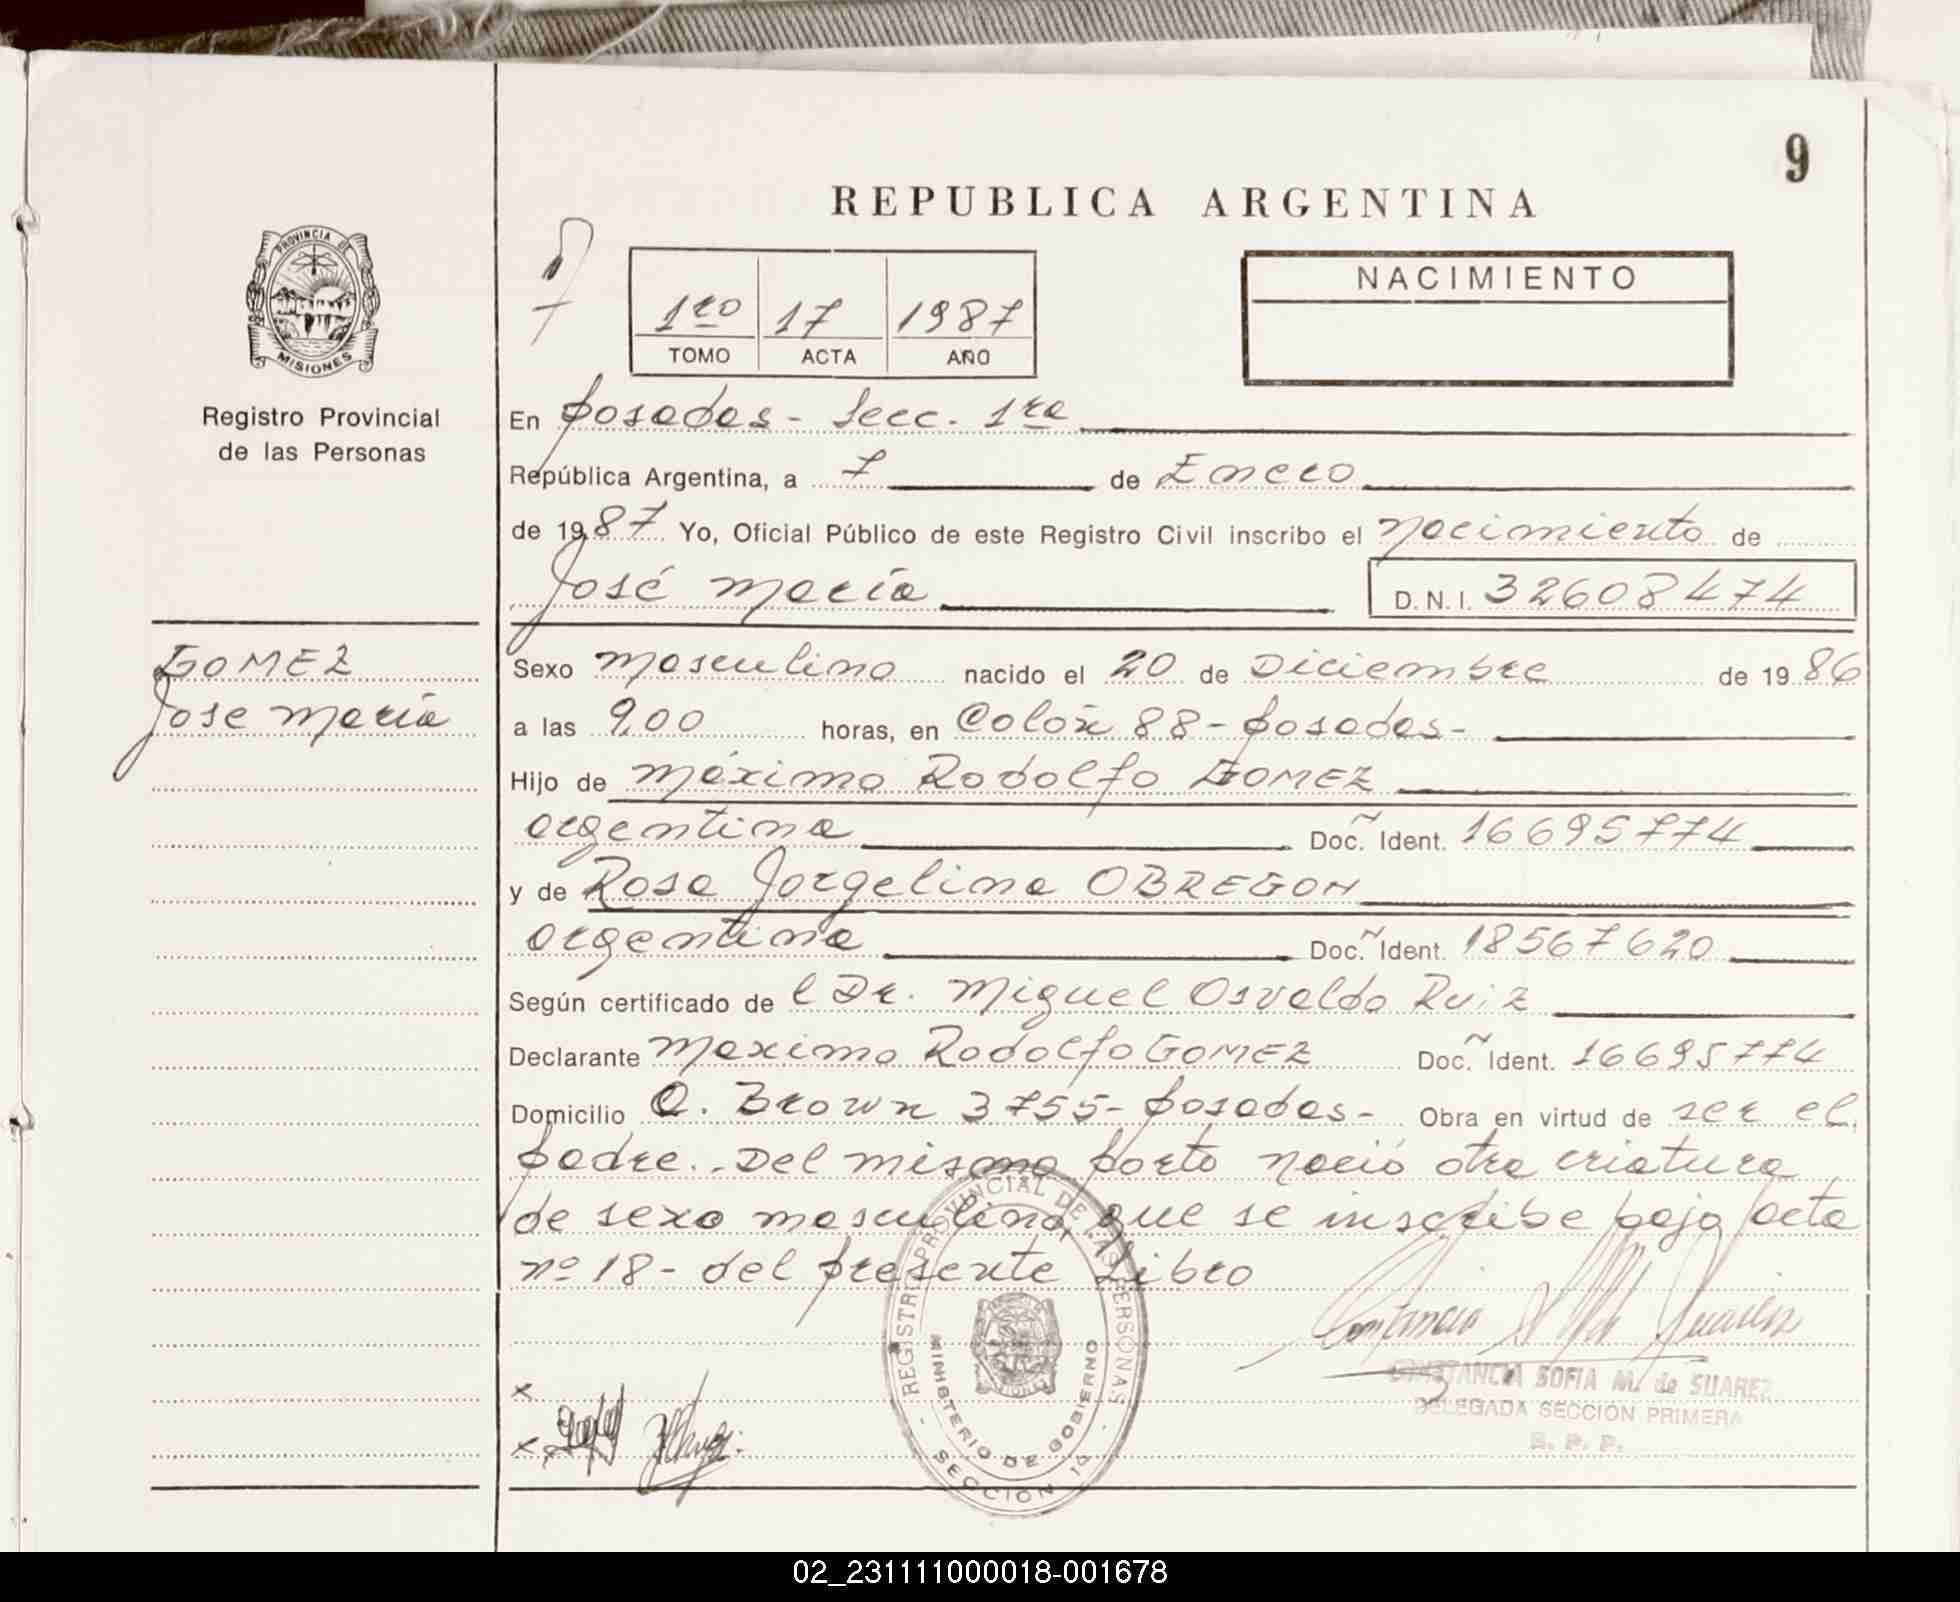 9
REPUBLICA ARGENTINA
PROVINCIA DE
MISIONES
Registro Provincial
de las Personas
1ro 17 1987
TOMO ACTA AÑO
NACIMIENTO
En Posadas - Secc. 1ra
República Argentina, a 7 de Enero
de 1987 Yo, Oficial Público de este Registro Civil inscribo el nacimiento de
José María
D.N.I. 32608474
GOMEZ
Jose María
Sexo masculino nacido el 20 de Diciembre de 1986
a las 9,00 horas, en Colón 88 - Posadas -
Hijo de Máximo Rodolfo GOMEZ
argentina Doc. Ident. 16695774
y de Rosa Jorgelina OBREGON
argentina Doc. Ident. 18567620
Según certificado de l Dr. Miguel Osvaldo Ruiz
Declarante Maximo Rodolfo GOMEZ Doc. Ident. 16695774
Domicilio Brown 3755 - Posadas - Obra en virtud de ser el
padre.. Del mismo parto nació otra criatura
de sexo masculino, que se inscribe bajo acta
nº 18 - del presente Libro
REGISTRO PROVINCIAL DE LAS PERSONAS
MINISTERIO DE GOBIERNO
SECCION 1a
Constancia Suarez
CONSTANCIA SOFIA M. de SUAREZ
DELEGADA SECCION PRIMERA
R. P. P.
02_231111000018-001678